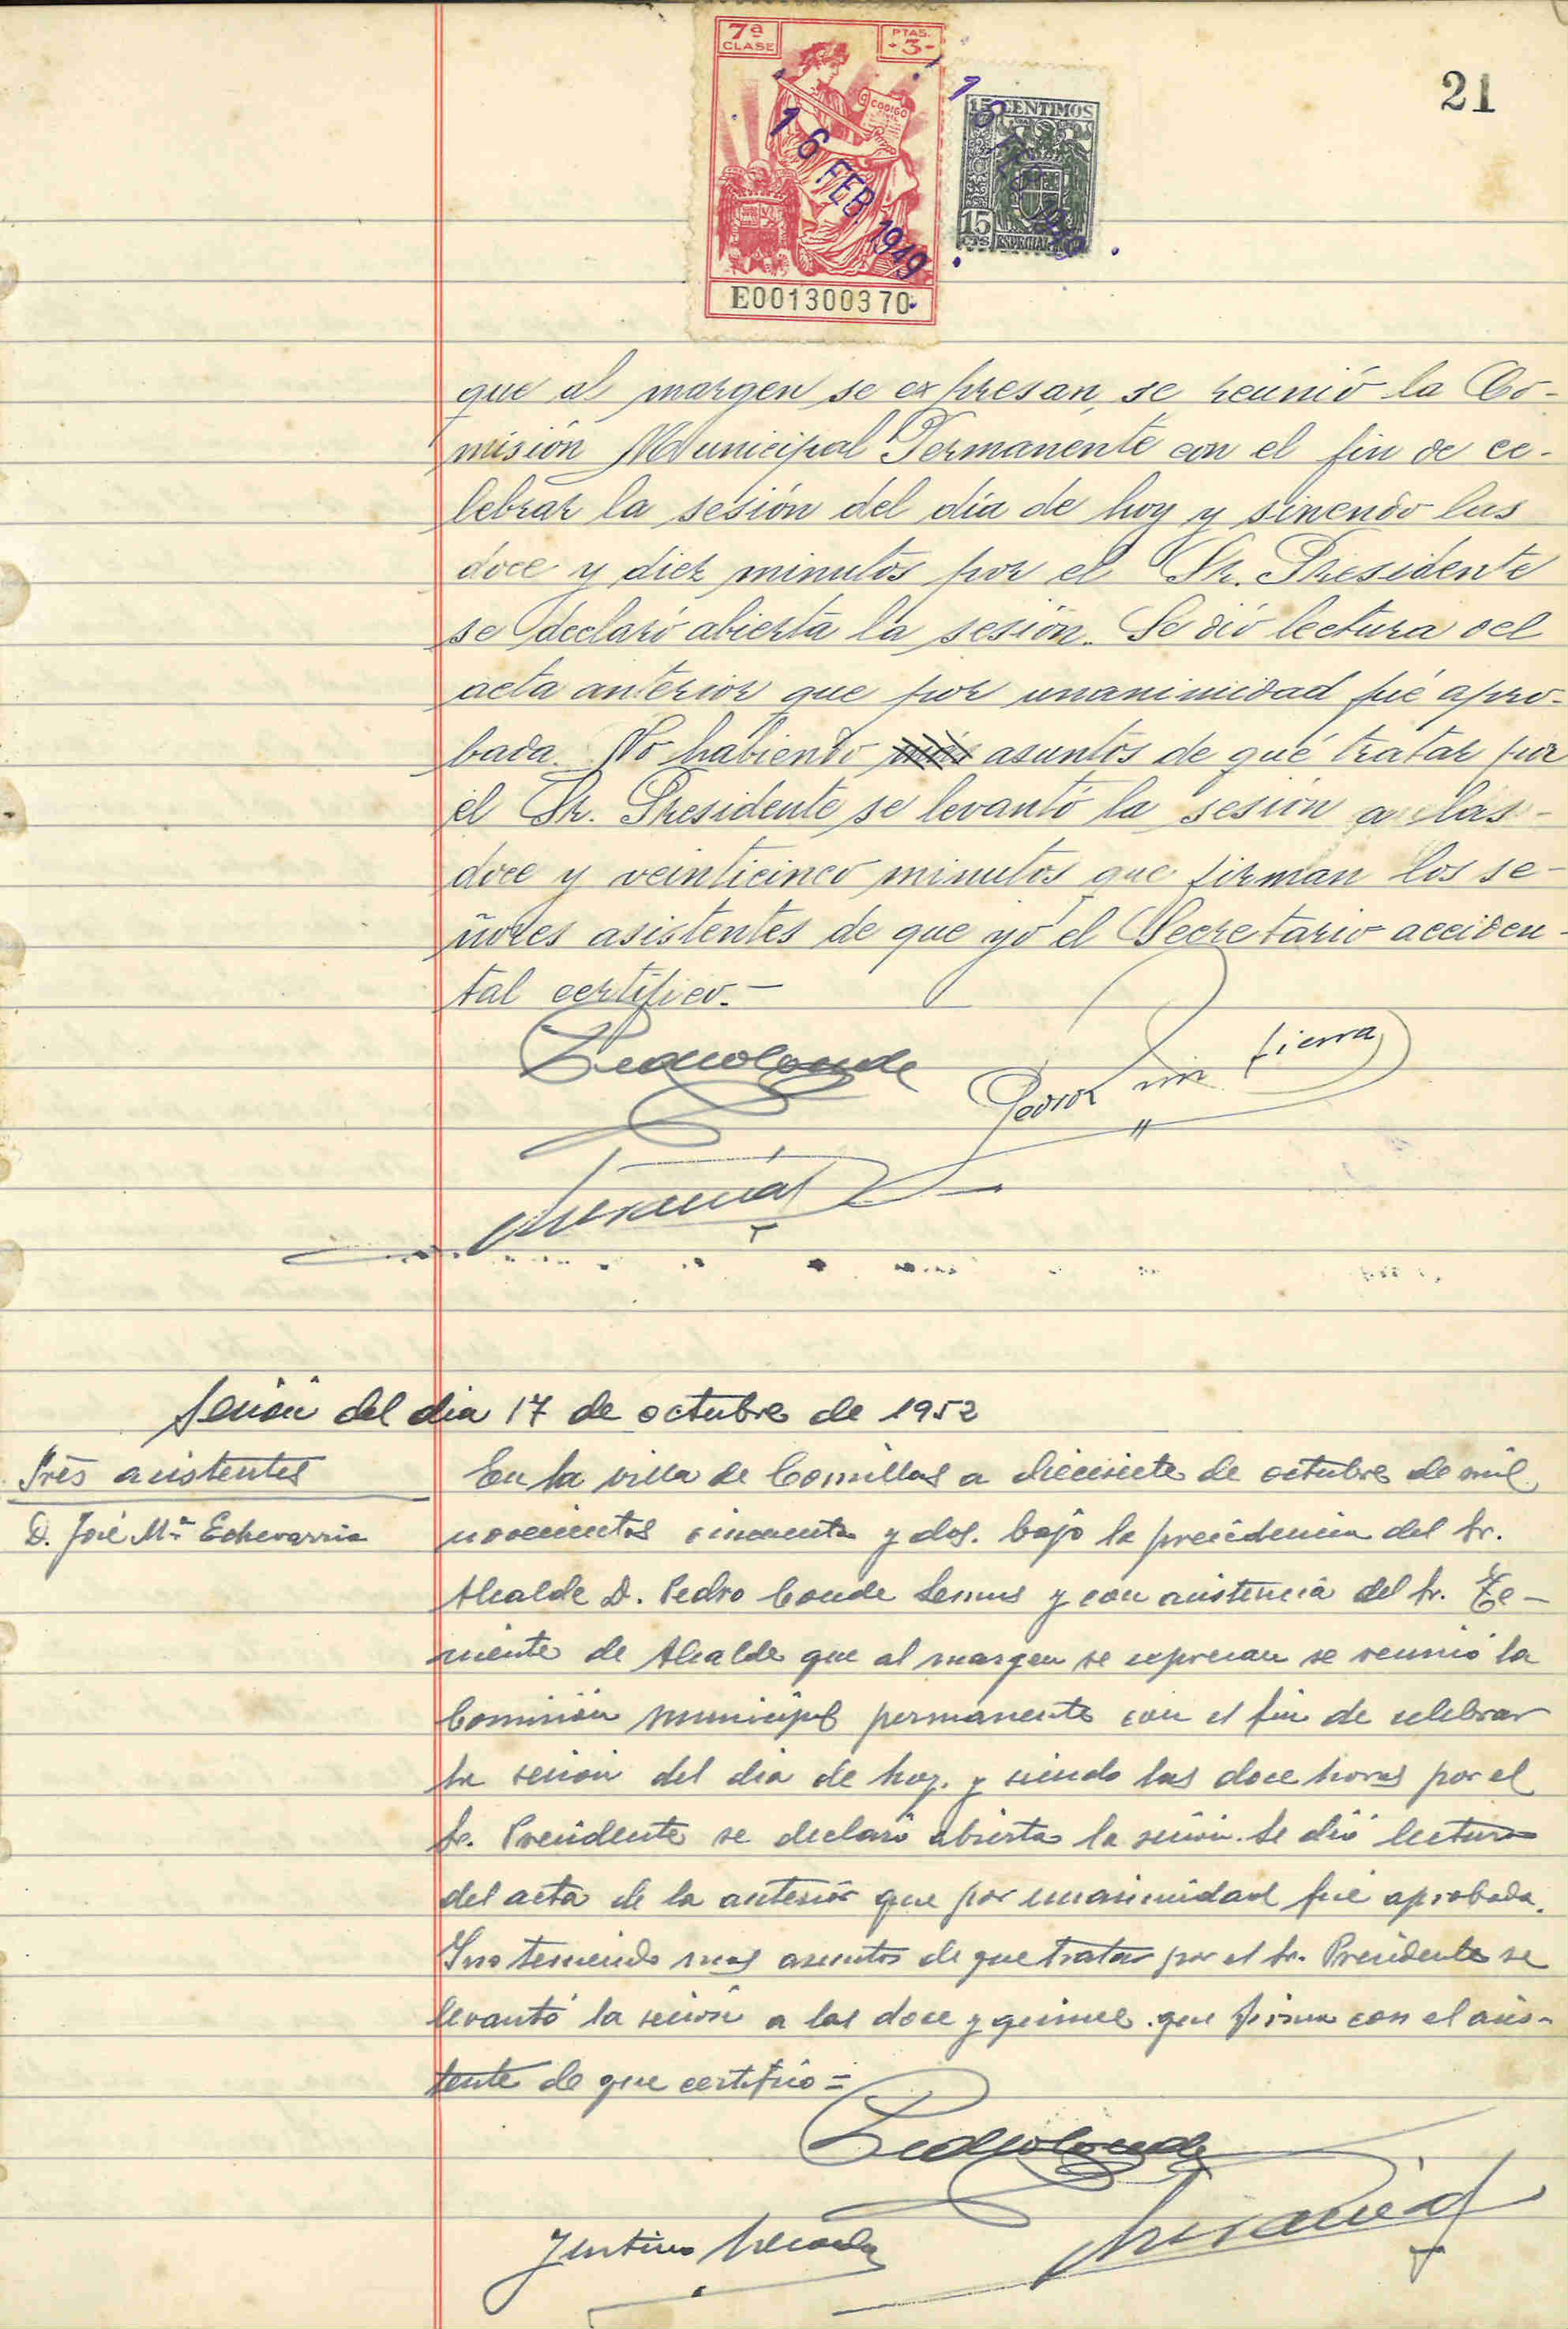 7ª CLASE
PTAS. -3-
CODIGO
16 FEB. 1949
E001300370
15 CENTIMOS
15 CTS ESPECIAL
21
que al margen se expresan, se reunió la Co-
misión Municipal Permanente con el fin de ce-
lebrar la sesión del día de hoy y sinendo las
doce y diez minutos por el Sr. Presidente
se declaró abierta la sesión. Se dió lectura del
acta anterior que por unanimidad fué apro-
bada. No habiendo más asuntos de qué tratar por
el Sr. Presidente se levantó la sesión a las-
doce y veinticinco minutos que firman los se-
ñores asistentes de que yo el Secretario acciden-
tal certifico.-
Pedro Conde
Sesión del dia 17 de octubre de 1952
Sres asistentes
D. José Mª Echevarria
En la villa de Comillas a diecisiete de octubre de mil
novecientos cincuenta y dos. bajo la presidencia del Sr.
Alcalde D. Pedro Conde Lemus y con asistencia del Sr. Te-
niente de Alcalde que al margen se expresan se reunió la
Comisión municipal permanente con el fin de celebrar
la sesión del dia de hoy. y siendo las doce horas por el
Sr. Presidente se declaró abierta la sesión. Se dió lectura
del acta de la anterior que por unanimidad fué aprobada.
Y no teniendo mas asuntos de que tratar por el Sr. Presidente se
levantó la sesión a las doce y quince. que firma con el asis-
tente de que certifico=
Pedro Conde